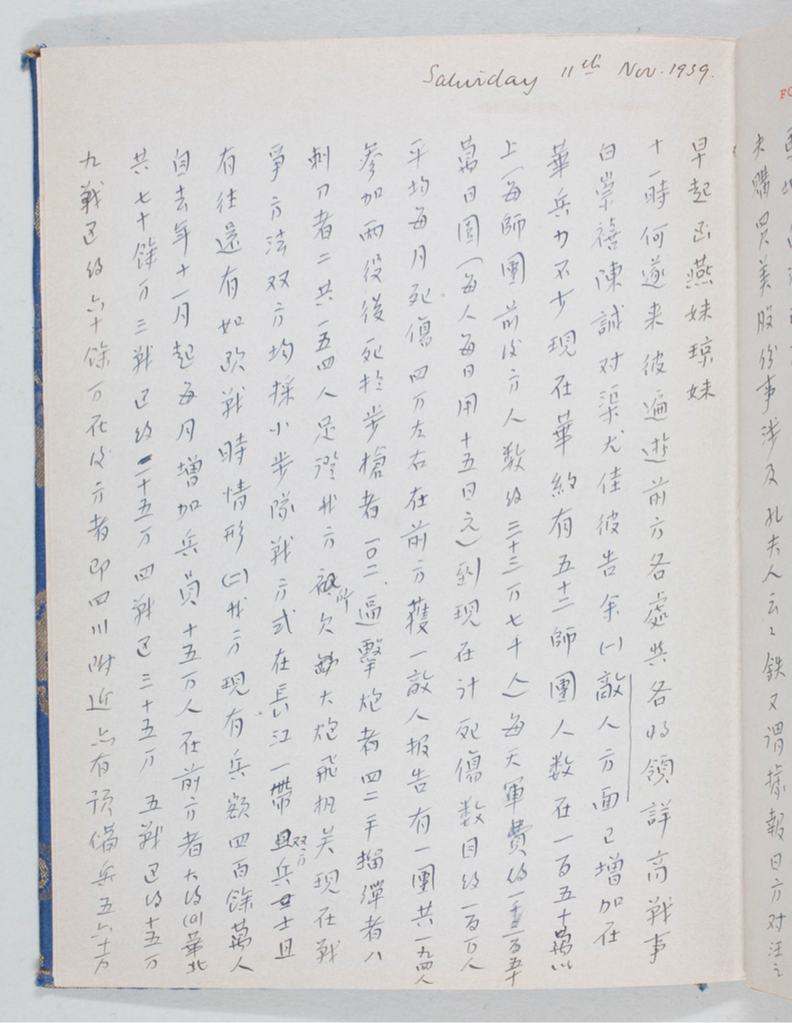 Saturday 11th Nov. 1939.
早起函燕妹琼妹
十一时何遂来彼遍遊前方各處與各將領詳商戰事
白崇禧陳誠对渠尤佳彼告余(一)敵人方面已增加在
華兵力不少現在華約有五十二師團人数在一百五十萬以
上(每師團前後方人数约三十三万七千人)每天軍費约一千二百五十
萬日圓(每人每日用十五日元)到現在计死傷数目约一百万人
平均每月死傷四万左右在前方獲一敵人报告有一團共一九四人
參加兩役後死於步槍者一〇二逼擊炮者四二手榴彈者八
刺刀者二共一五四人足證我方所欠缺大炮飛机关現在戰
爭方法双方均採小步隊戰方式在長江一帶双方兵士且
有往還有如欧戰時情形(二)我方現有兵額四百餘萬人
自去年十一月起每月增加兵員十五万人在前方者大约(四)華北
共七十餘万三戰区约二十五万四戰区三十五万五戰区约十五万
九戰区约六十餘万在後方者即四川附近亦有預備兵五六十万
夫購買美股份事涉及孔夫人云云鉄又謂據報日方对汪之